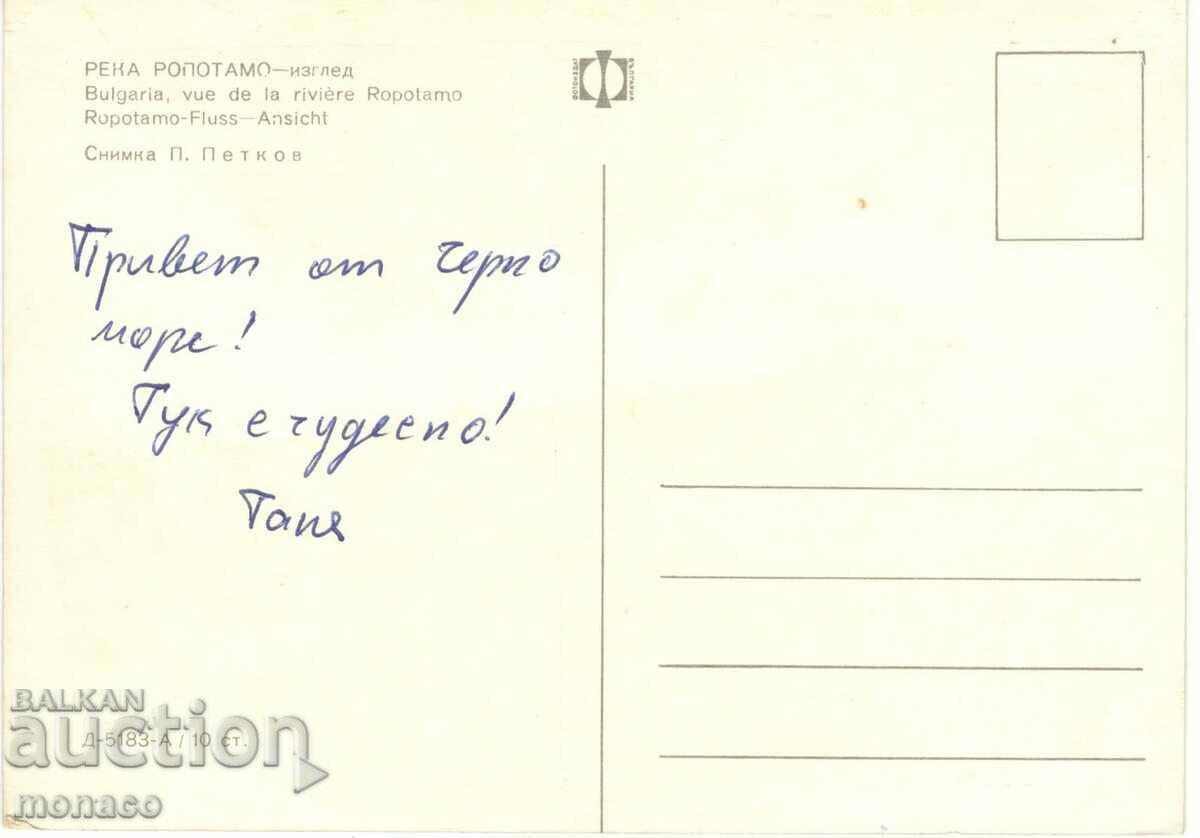 РЕКА РОПОТАМО—изглед
Bulgaria, vue de la rivière Ropotamo
Ropotamo-Fluss—Ansicht
Снимка П. Петков
ФОТОИЗДАТ
БЪЛГАРИЯ
Привет от Черно
море!
Тук е чудесно!
Таня
BALKAN
auction
Д-5183-А / 10 ст.
monaco